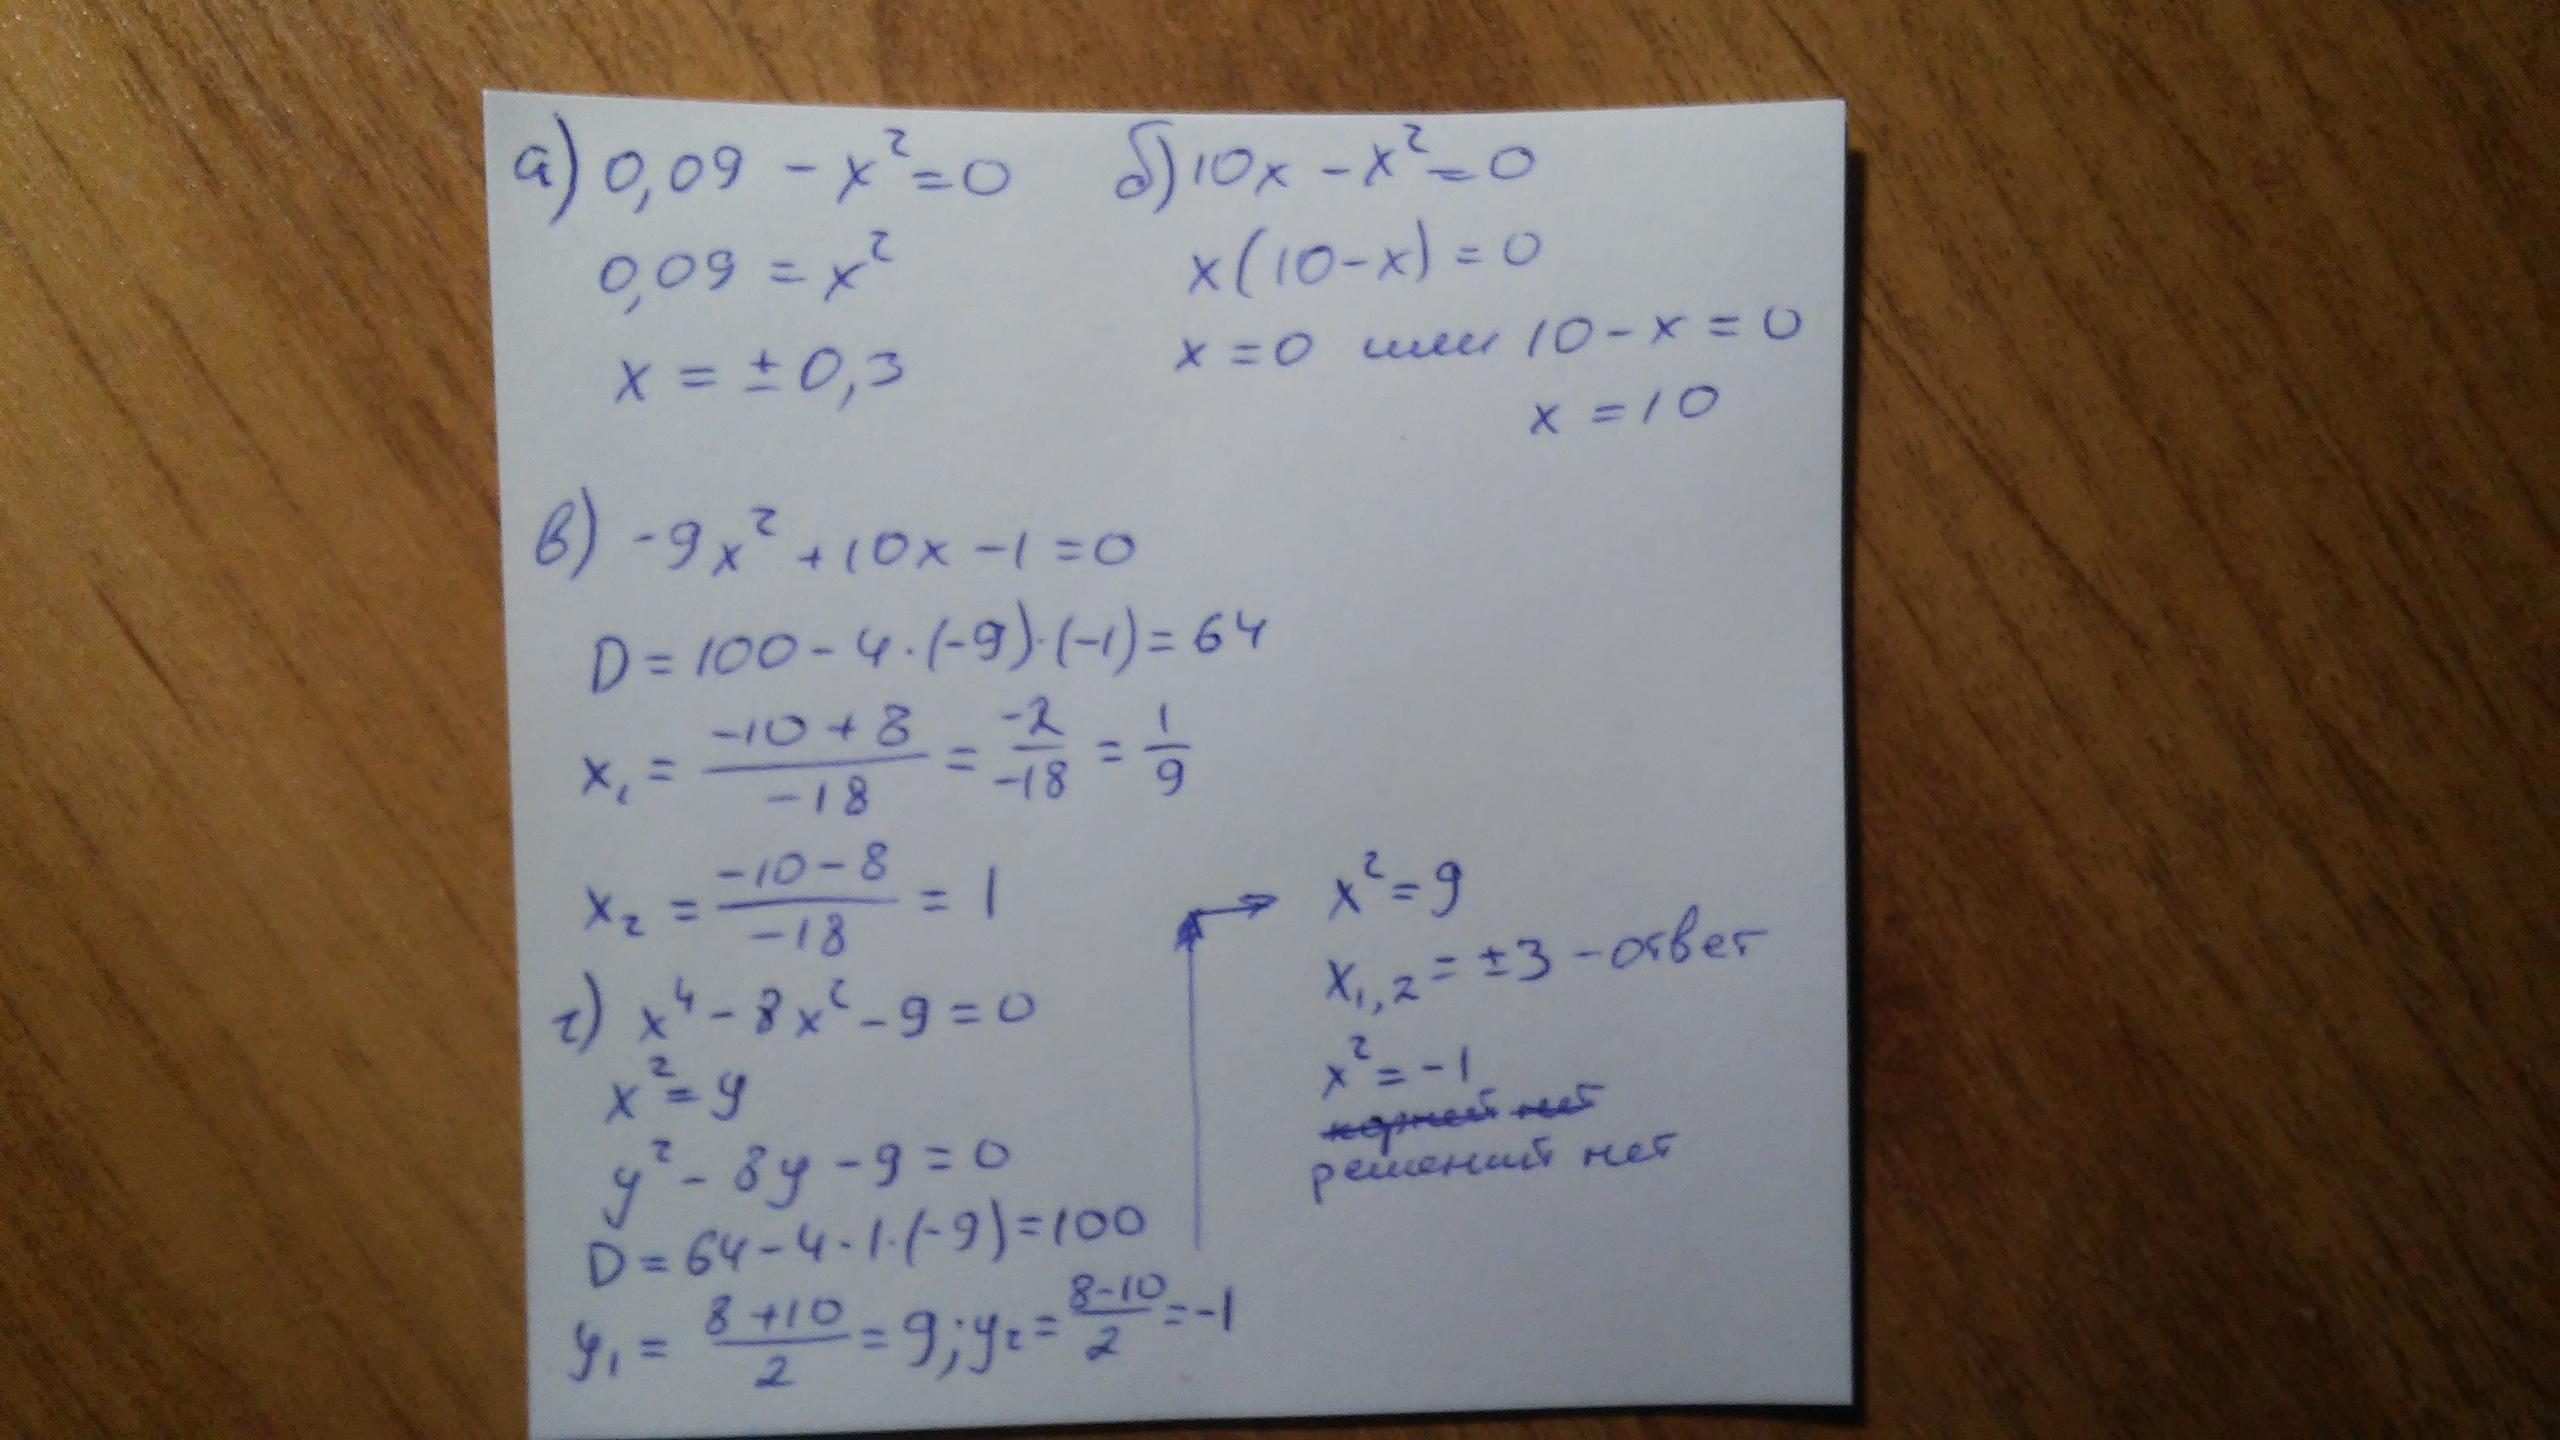 а) 0,09 - x² = 0
0,09 = x²
x = ± 0,3
б) 10x - x² = 0
x(10-x) = 0
x = 0 или 10 - x = 0
x = 10
в) -9x² + 10x - 1 = 0
D = 100 - 4·(-9)·(-1) = 64
x₁ = (-10 + 8)/(-18) = -2/-18 = 1/9
x₂ = (-10 - 8)/(-18) = 1
г) x⁴ - 8x² - 9 = 0
x² = y
y² - 8y - 9 = 0
D = 64 - 4·1·(-9) = 100
y₁ = (8 + 10)/2 = 9; y₂ = (8-10)/2 = -1
x² = 9
x₁,₂ = ±3 - ответ
x² = -1
корней нет
решений нет